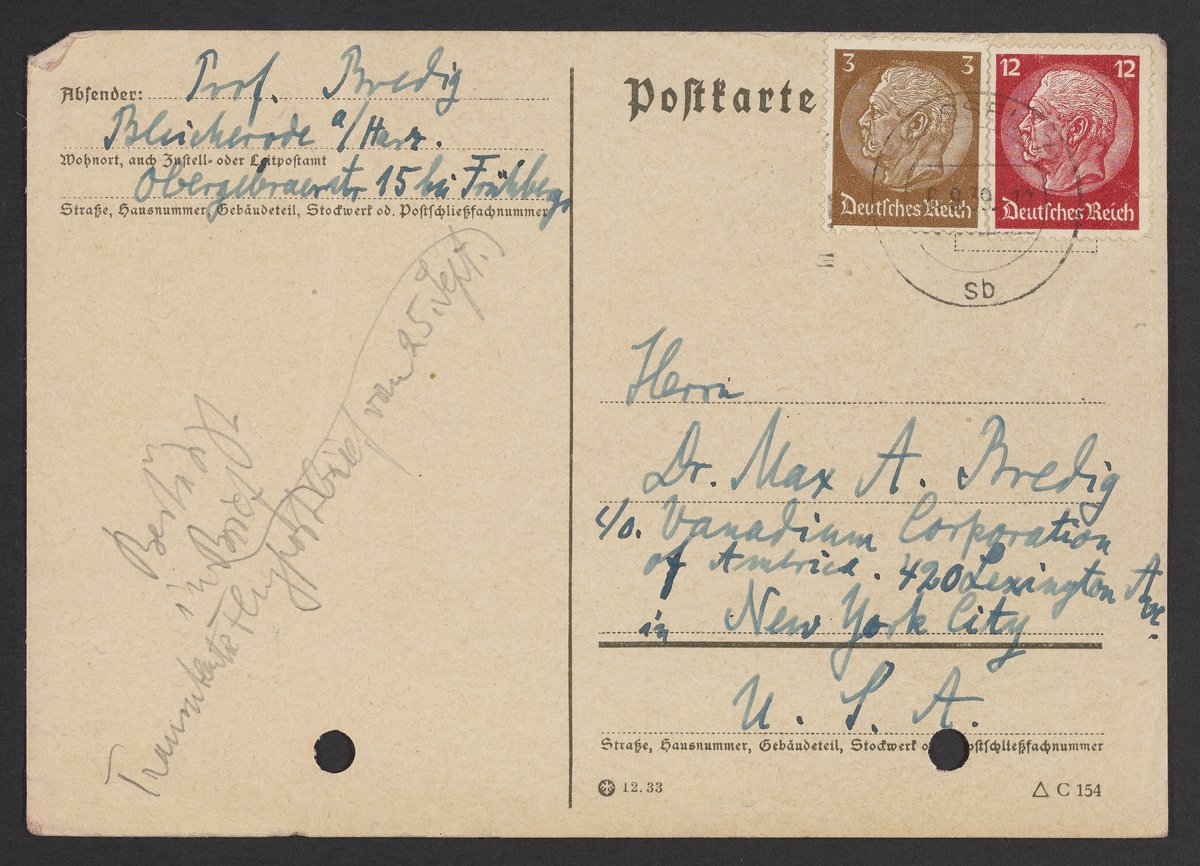 Absender: Prof. Bredig
Bleicherode a/Harz.
Wohnort, auch Zustell- oder Leitpostamt
Obergebraerstr 15 bei Frühberg
Straße, Hausnummer, Gebäudeteil, Stockwerk od. Postschließfachnummer
Postkarte
3 3
Deutsches Reich
12 12
Deutsches Reich
sb
Herrn
Dr. Max A. Bredig
c/o. Vanadium Corporation
of America. 420 Lexington Ave.
in New York City
U. S. A.
Straße, Hausnummer, Gebäudeteil, Stockwerk Postschließfachnummer
12.33
C 154
Bestätigt
in Brief
vom 25. Sept.)